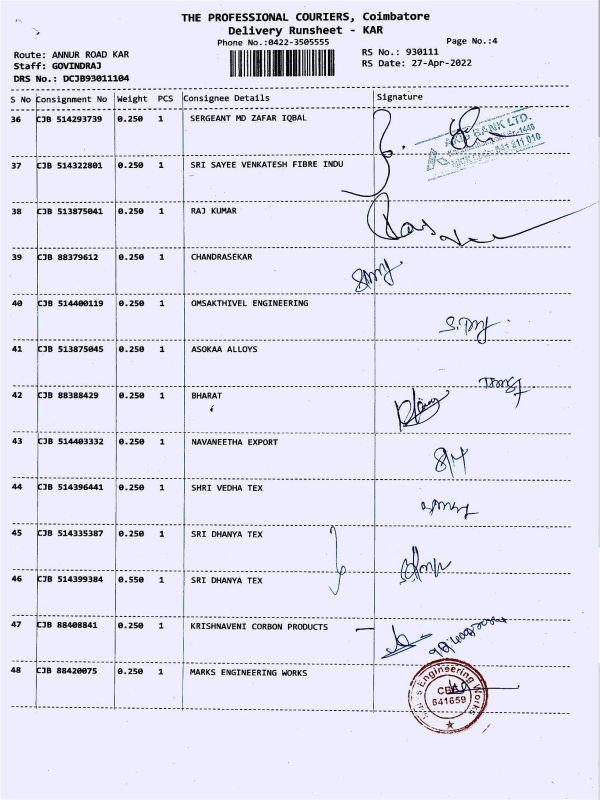 THE PROFESSIONAL COURIERS, Coimbatore
Delivery Runsheet - KAR
Phone No.:0422-3505555
Page No.:4
Route: ANNUR ROAD KAR
RS No.: 930111
Staff: GOVINDRAJ
RS Date: 27-Apr-2022
DRS No.: DCJB93011104
S No Consignment No Weight PCS Consignee Details Signature
36 CJB 514293739 0.250 1 SERGEANT MD ZAFAR IQBAL
BANK LTD.
37 CJB 514322801 0.250 1 SRI SAYEE VENKATESH FIBRE INDU
38 CJB 513875041 0.250 1 RAJ KUMAR
39 CJB 88379612 0.250 1 CHANDRASEKAR
40 CJB 514400119 0.250 1 OMSAKTHIVEL ENGINEERING
41 CJB 513875045 0.250 1 ASOKAA ALLOYS
42 CJB 88388429 0.250 1 BHARAT
43 CJB 514403332 0.250 1 NAVANEETHA EXPORT
44 CJB 514396441 0.250 1 SHRI VEDHA TEX
45 CJB 514335387 0.250 1 SRI DHANYA TEX
46 CJB 514399384 0.550 1 SRI DHANYA TEX
47 CJB 88408841 0.250 1 KRISHNAVENI CORBON PRODUCTS
48 CJB 88420075 0.250 1 MARKS ENGINEERING WORKS
Engineering Works
641659